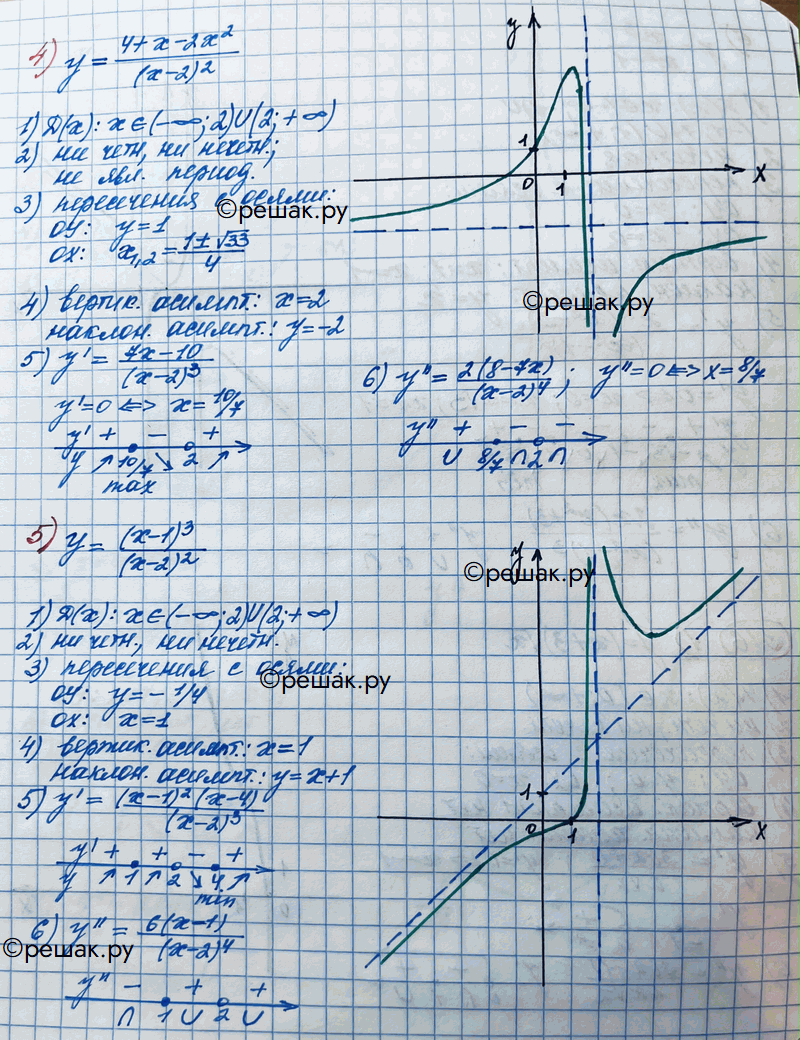 4) y = (4+x-2x²)/(x-2)²
1) D(x): x∈(-∞;2)U(2;+∞)
2) ни четн, ни нечетн.;
не явл. период.
3) пересечения с осями:
©решак.ру
OY: y=1
OX: x₁,₂ = (1±√33)/4
4) вертик. асимпт.: x=2
наклон. асимпт.: y=-2
5) y' = (7x-10)/(x-2)³
y'=0 <=> x=10/7
y' + - +
y ↗ 10/7 ↘ 2 ↗
max
y
1
0 1 x
©решак.ру
6) y'' = 2(8-7x)/(x-2)⁴; y''=0 <=> x=8/7
y'' + - -
U 8/7 ∩ 2 ∩
5) y = (x-1)³/(x-2)²
1) D(x): x∈(-∞;2)U(2;+∞)
2) ни четн., ни нечетн.
3) пересечения с осями:
©решак.ру
OY: y=-1/4
OX: x=1
4) вертик. асимпт.: x=1
наклон. асимпт.: y=x+1
5) y' = (x-1)²(x-4)/(x-2)³
y' + + - +
y ↗ 1 ↗ 2 ↘ 4 ↗
min
6) y'' = 6(x-1)/(x-2)⁴
©решак.ру
y'' - + +
∩ 1 U 2 U
y
©решак.ру
1
0 1 x